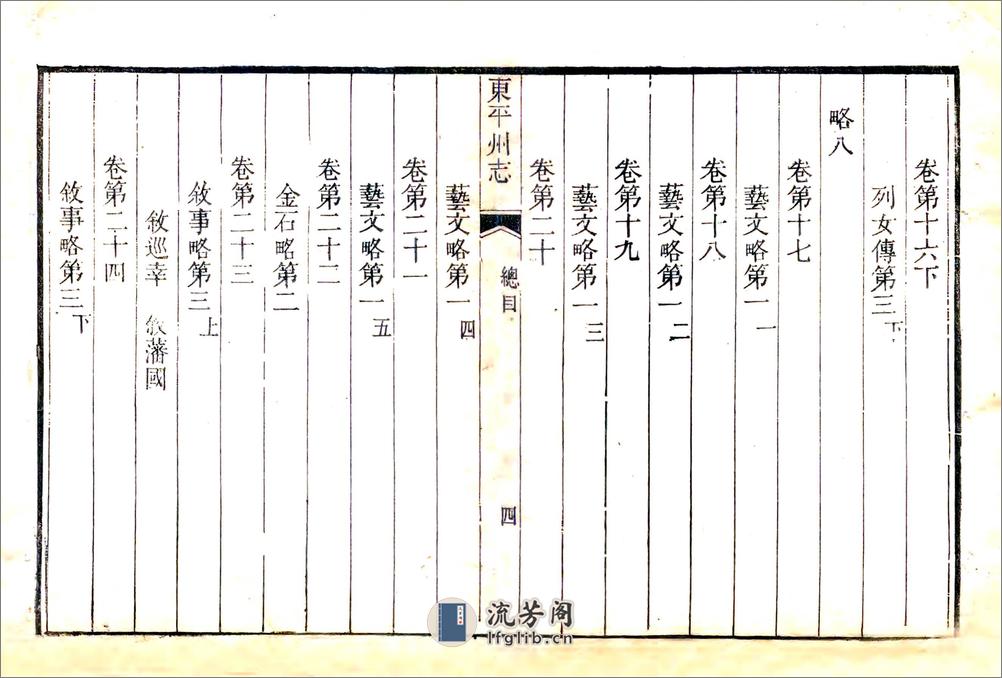 卷第十六下
列女傳第三下
略八
卷第十七
藝文略第一一
卷第十八
藝文略第一二
卷第十九
藝文略第一三
卷第二十
東平州志
總目
四
藝文略第一四
卷第二十一
藝文略第一五
卷第二十二
金石略第二
卷第二十三
敘事略第三上
敘巡幸 敘藩國
卷第二十四
敘事略第三下
流芳阁
lfglib.cn